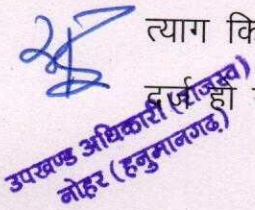 त्याग कि
दर्ज हो
उपखण्ड अधिकारी (राजस्व)
नोहर (हनुमानगढ़)